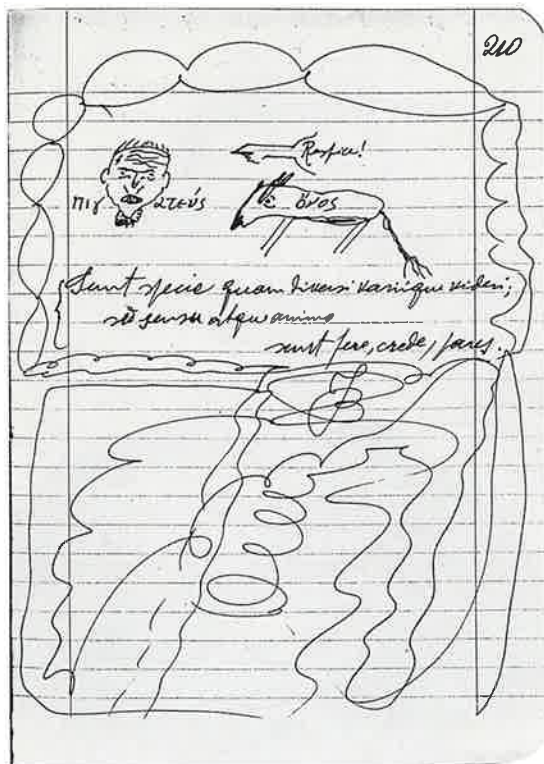 210
Respice!
πιγ ατεύς
ὄνος
Sunt specie quam diversi variique videri;
sed sensu atque animo
sunt fere, crede, pares.